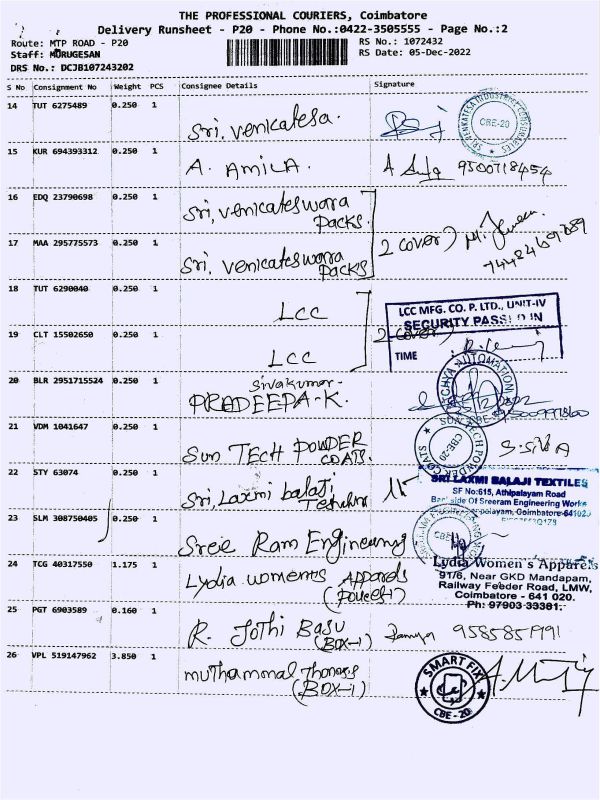 THE PROFESSIONAL COURIERS, Coimbatore
Delivery Runsheet - P20 - Phone No.:0422-3505555 - Page No.:2
Route: MTP ROAD - P20
RS No.: 1072432
Staff: MURUGESAN
RS Date: 05-Dec-2022
DRS No.: DCJB107243202
S No Consignment No Weight PCS Consignee Details Signature
14 TUT 6275489 0.250 1 Sri. Venkatesa.
SRI VENKATESA INDUSTRIAL CONSUMABLES
CBE-20
15 KUR 694393312 0.250 1 A. AMILA. 9500718454
16 EDQ 23790698 0.250 1 Sri, Venkateswara Packs.
17 MAA 295775573 0.250 1 Sri, Venkateswara Packs
2 cover)
18 TUT 6290040 0.250 1 LCC
LCC MFG. CO. P. LTD., UNIT-IV
SECURITY PASSED IN
19 CLT 15502650 0.250 1 LCC
2 cover)
TIME
20 BLR 2951715524 0.250 1 Sivakumar-
PRADEEPA-K.
21 VDM 1041647 0.250 1 Sun TECH POWDER COATS.
CBE-20
S. SIVA
22 STY 63074 0.250 1 Sri, Laxmi balaji
SRI LAXMI BALAJI TEXTILES
SF No:615, Athipalayam Road
Side Of Sreeram Engineering Works
Coimbatore-641020
23 SLM 308750405 0.250 1 Sree Ram Engineering
24 TCG 40317550 1.175 1 Lydia women's Apparels
Lydia Women's Apparels
91/6, Near GKD Mandapam,
Railway Feeder Road, LMW,
Coimbatore - 641 020.
Ph: 97903 33381,
25 PGT 6903589 0.160 1 R. Jothi Basu
(BOX-1)
26 VPL 519147962 3.850 1 muthammal
(BOX-1)
SMART FIX
CBE-20